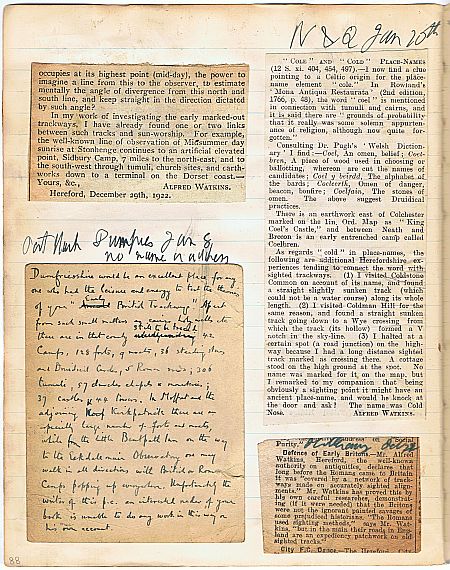 occupies at its highest point (mid-day), the power to
imagine a line from this to the observer, to estimate
mentally the angle of divergence from this north and
south line, and keep straight in the direction dictated
by such angle?
In my work of investigating the early marked-out
trackways, I have already found one or two links
between such tracks and sun-worship. For example,
the well-known line of observation of Midsummer day
sunrise at Stonehenge continues to an artificial elevated
point, Sidbury Camp, 7 miles to the north-east, and to
the south-west through tumuli, church sites, and earth-
works down to a terminal on the Dorset coast.—
Yours, &c., ALFRED WATKINS.
Hereford, December 29th, 1922.
Post Mark Dumfries Jan 8,
no name or address
Dumfriesshire would be an excellent place for any
one who had the leisure and energy to test the theory
of your "Early British Trackways". Apart
from such small matters
there are in that county 42
Camps, 128 forts, 9 moats, 38 standing stones
and Druidical Circles, 5 Roman roads, 300
tumuli, 57 chapels &
37 castles & 44 towers. In Moffat and the
adjoining Kirkpatrick there are an
especially large number of forts and moats,
while from the little
to the Eskdalemuir Observatory one may
walk in all directions with British or Roman
Camps popping up everywhere. Unfortunately the
writer of this p.c. an interested reader of your
book is unable to do any work in this way on
his own account.
88
N & Q Jan 20th
"COLE" AND "COLD" PLACE-NAMES
(12 S. xi. 404, 454, 497).—I now find a clue
pointing to a Celtic origin for the place-
name element "cole." In Rowland's
'Mona Antiqua Restaurata' (2nd edition,
1766, p. 48), the word "coel" is mentioned
in connection with tumuli and cairns, and
it is said there are "grounds of probability
that it really was some solemn appurten-
ance of religion, although now quite for-
gotten."
Consulting Dr. Pugh's 'Welsh Diction-
ary' I find—Coel, An omen, belief; Coel-
bren, A piece of wood used in choosing or
ballotting, whereon are cut the names of
candidates; Coel y beirdd, The alphabet of
the bards; Coelcerth, Omen of danger,
beacon, bonfire; Coelfain, The stones of
omen. The above suggest Druidical
practices.
There is an earthwork east of Colchester
marked on the 1in. Ord. Map as "King
Coel's Castle," and between Neath and
Brecon is an early entrenched camp called
Coelbren.
As regards "cold" in place-names, the
following are additional Herefordshire ex-
periences tending to connect the word with
sighted trackways. (1) I visited Coldstone
Common on account of its name, and found
a straight slightly sunken track (which
could not be a water course) along its whole
length. (2) I visited Coldman Hill for the
same reason, and found a straight sunken
track going down to a Wye crossing from
which the track (its hollow) formed a V
notch in the sky-line. (3) I halted at a
certain spot (a road junction) on the high-
way because I had a long distance sighted
track marked as crossing there. A cottage
stood on the high ground at the spot. No
name was marked for it on the map, but
I remarked to my companion that being
obviously a sighting point it might have an
ancient place-name, and would he knock at
the door and ask! The name was Cold
Nose. ALFRED WATKINS.
Purity."
Defence of Early Britons.—Mr. Alfred
Watkins, Hereford, the well-known
authority on antiquities, declares that
long before the Romans came to Britain
it was "covered by a network of track-
ways made on accurately sighted align-
ments." Mr. Watkins has proved this by
his own careful researches, demonstrat-
ing (if it were needed) that the Britons
were not the ignorant painted savages of
some prejudiced historians. "The Romans
used sighting methods," says Mr. Wat-
kins, "but in the main their roads in Eng-
land are an expediency patchwork on old
sighted tracks."
City F.C. Dance.—The Hereford City